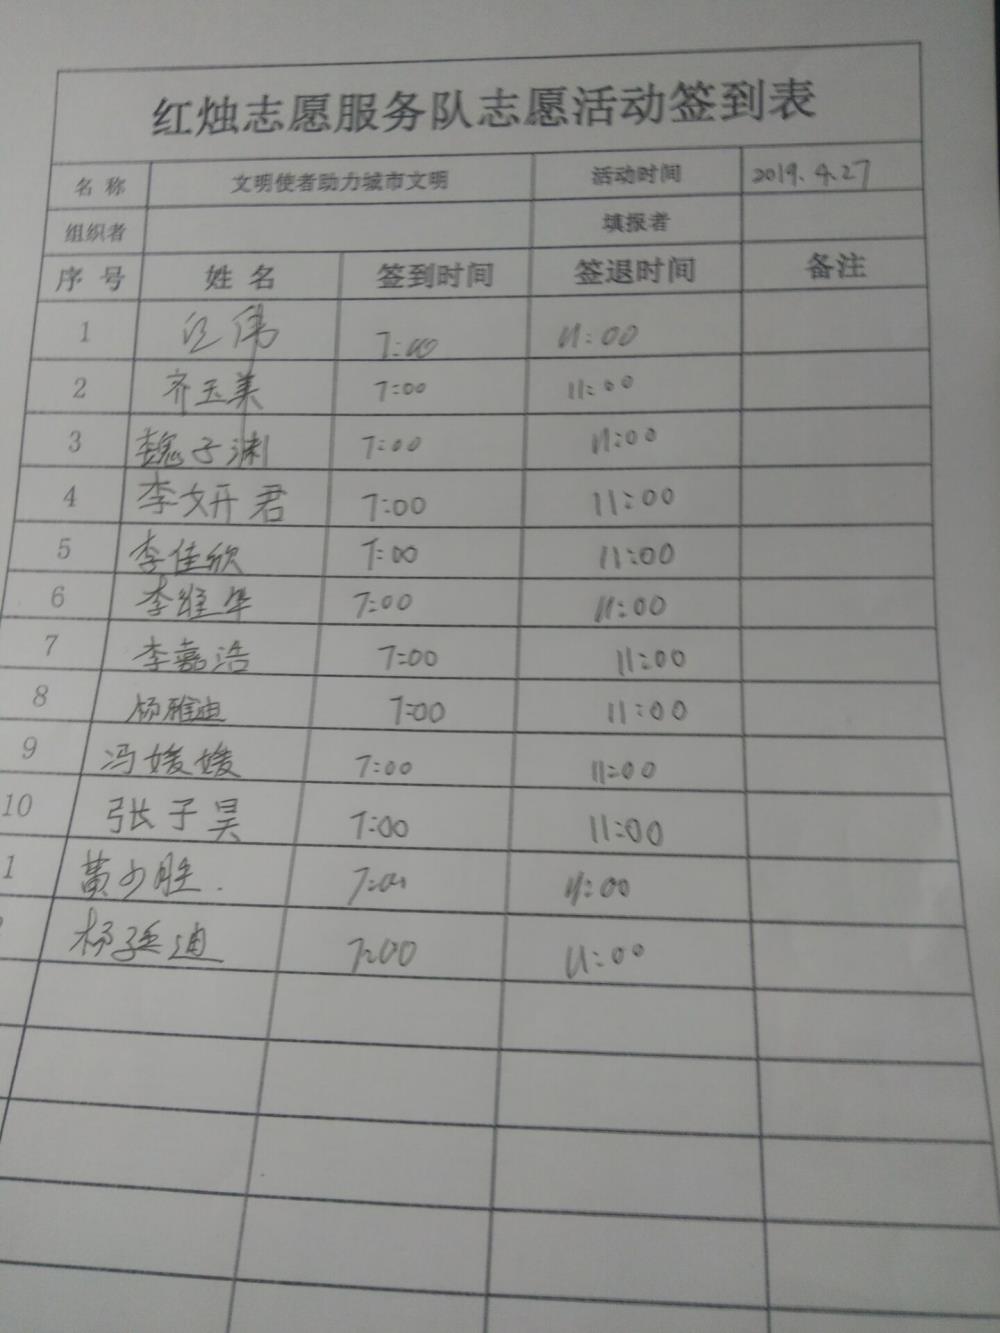 红烛志愿服务队志愿活动签到表
名 称 文明使者助力城市文明 活动时间 2019.4.27
组织者 填报者
序 号 姓 名 签到时间 签退时间 备注
1 伟 7:00 11:00
2 齐玉美 7:00 11:00
3 魏子渊 7:00 11:00
4 李妍君 7:00 11:00
5 李佳欣 7:00 11:00
6 李维华 7:00 11:00
7 李嘉浩 7:00 11:00
8 杨雅迪 7:00 11:00
9 冯媛媛 7:00 11:00
10 张子昊 7:00 11:00
1 黄少胜. 7:00 11:00
杨 迪 7:00 11:00